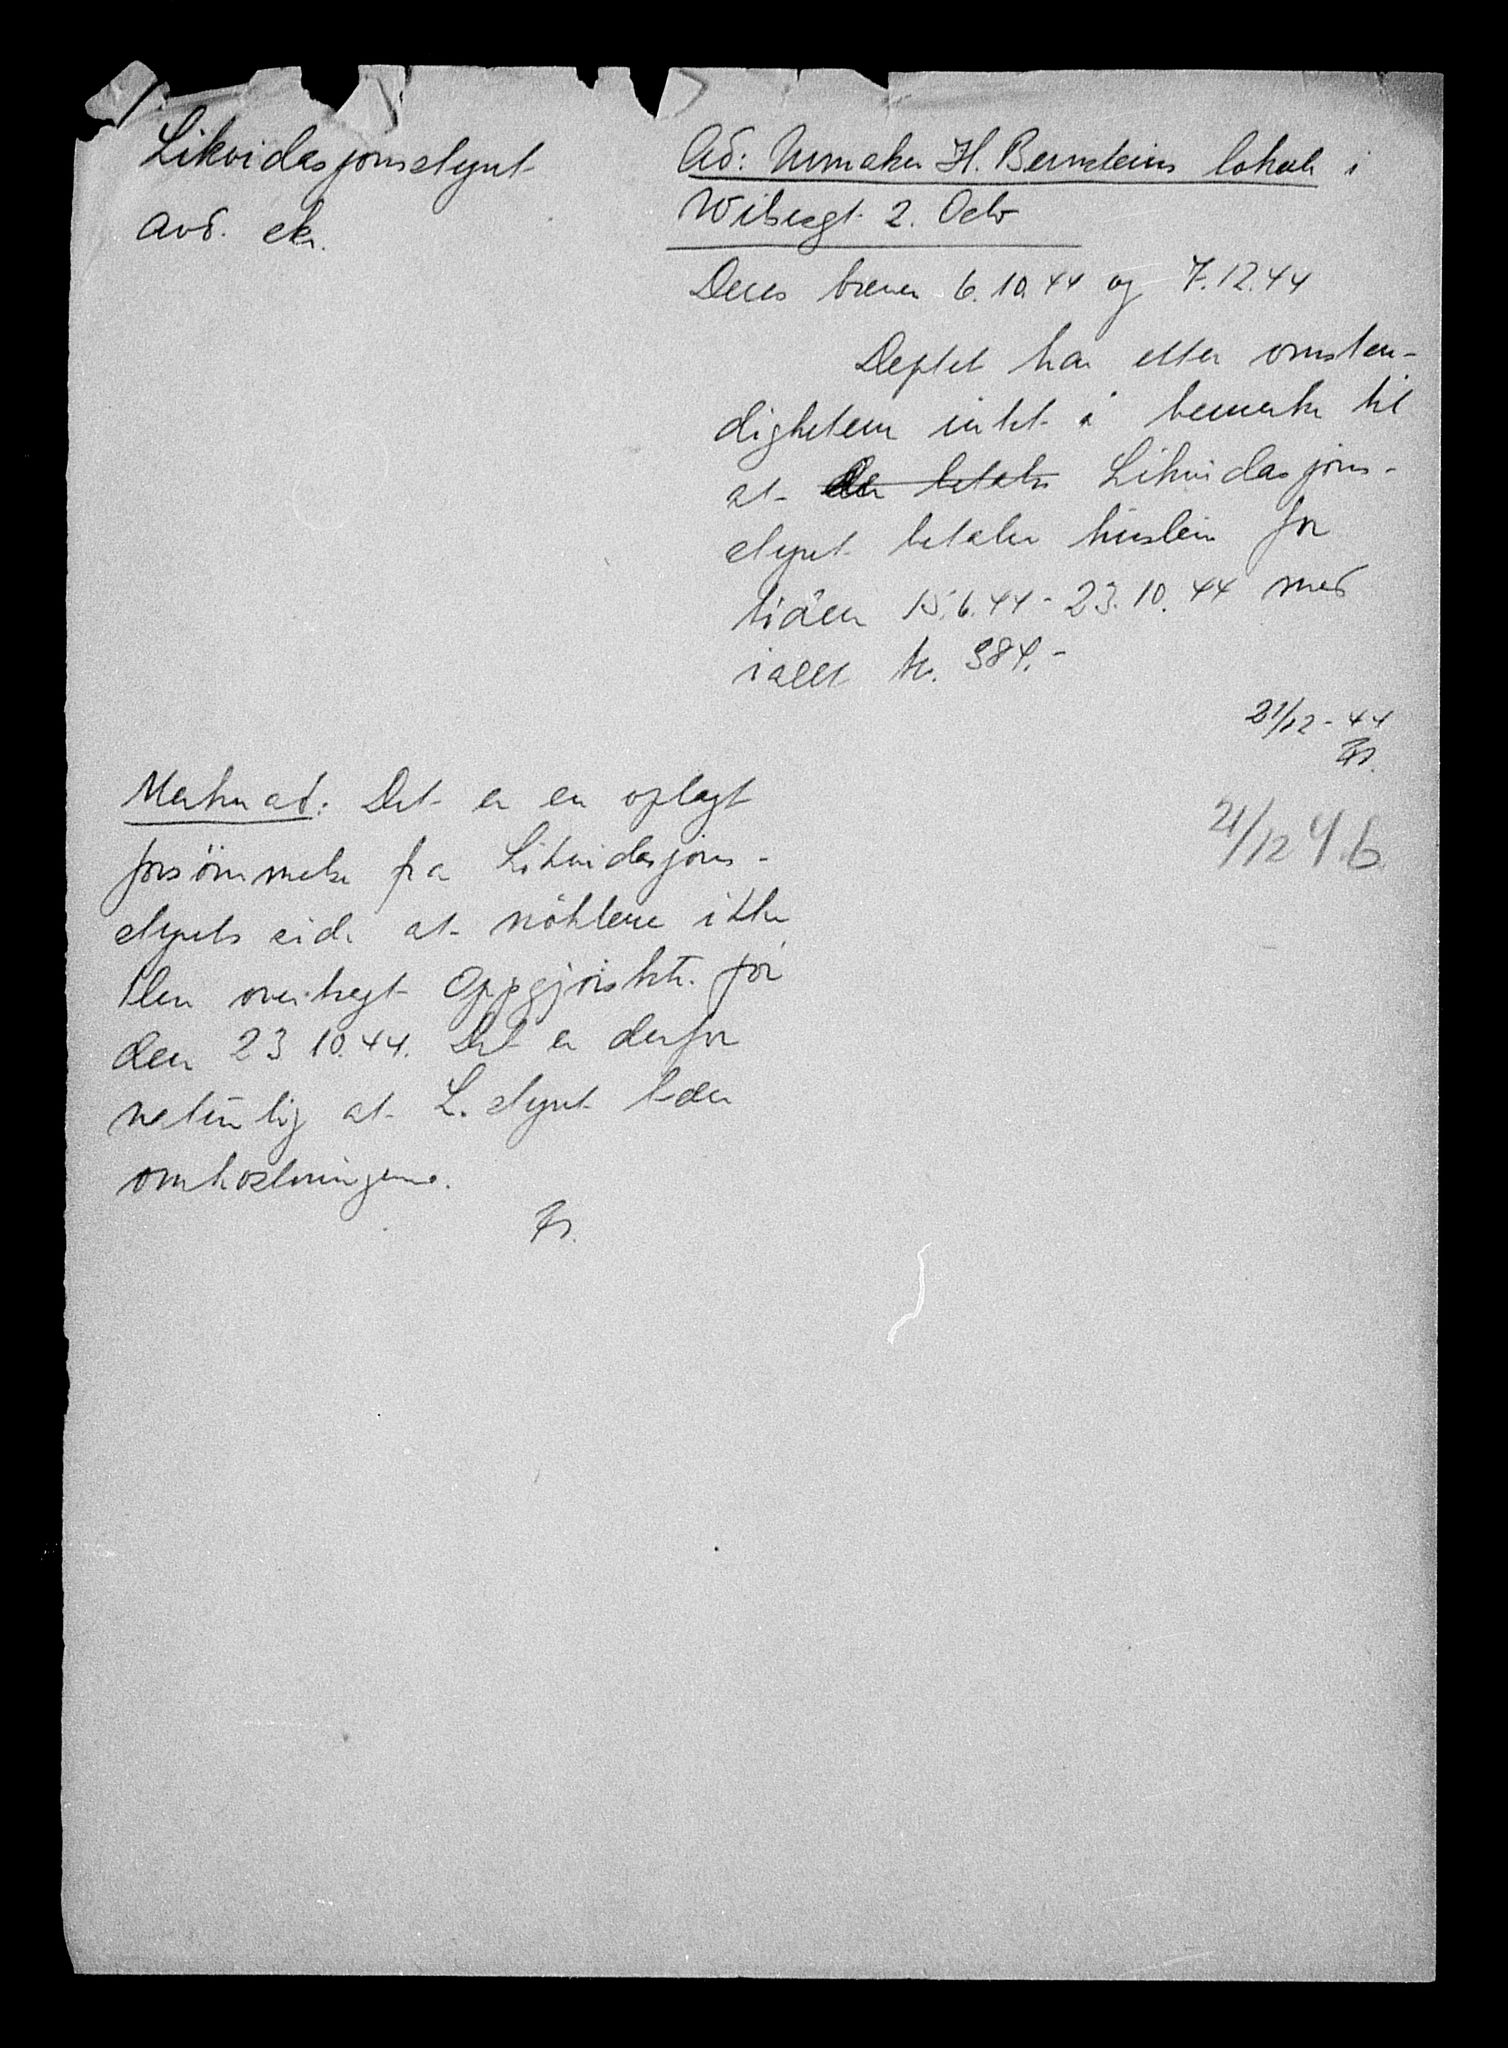 Likvidasjonsstyret
avd. eks.
Ad: Urmaker H. Bernsteins lokale i
Wibesgt 2. Oslo
Deres brever 6.10.44 og 7.12.44
Deptet har etter omsten-
dighetene intet å bemerke til
at der betales Likvidasjons-
styret betaler husleie for
tiden 15.6.44 - 23.10.44 med
i alt kr. 384.-
21/12-44
Fs.
21/12 46
Merknad: Det er en oplagt
forsömmelse fra Likvidasjons-
styrets side at nöklene ikke
blev overbragt Oppgjörsktr. för
den 23 10.44. Det er derfor
naturlig at L. styret bær
omkostningene.
Fs.